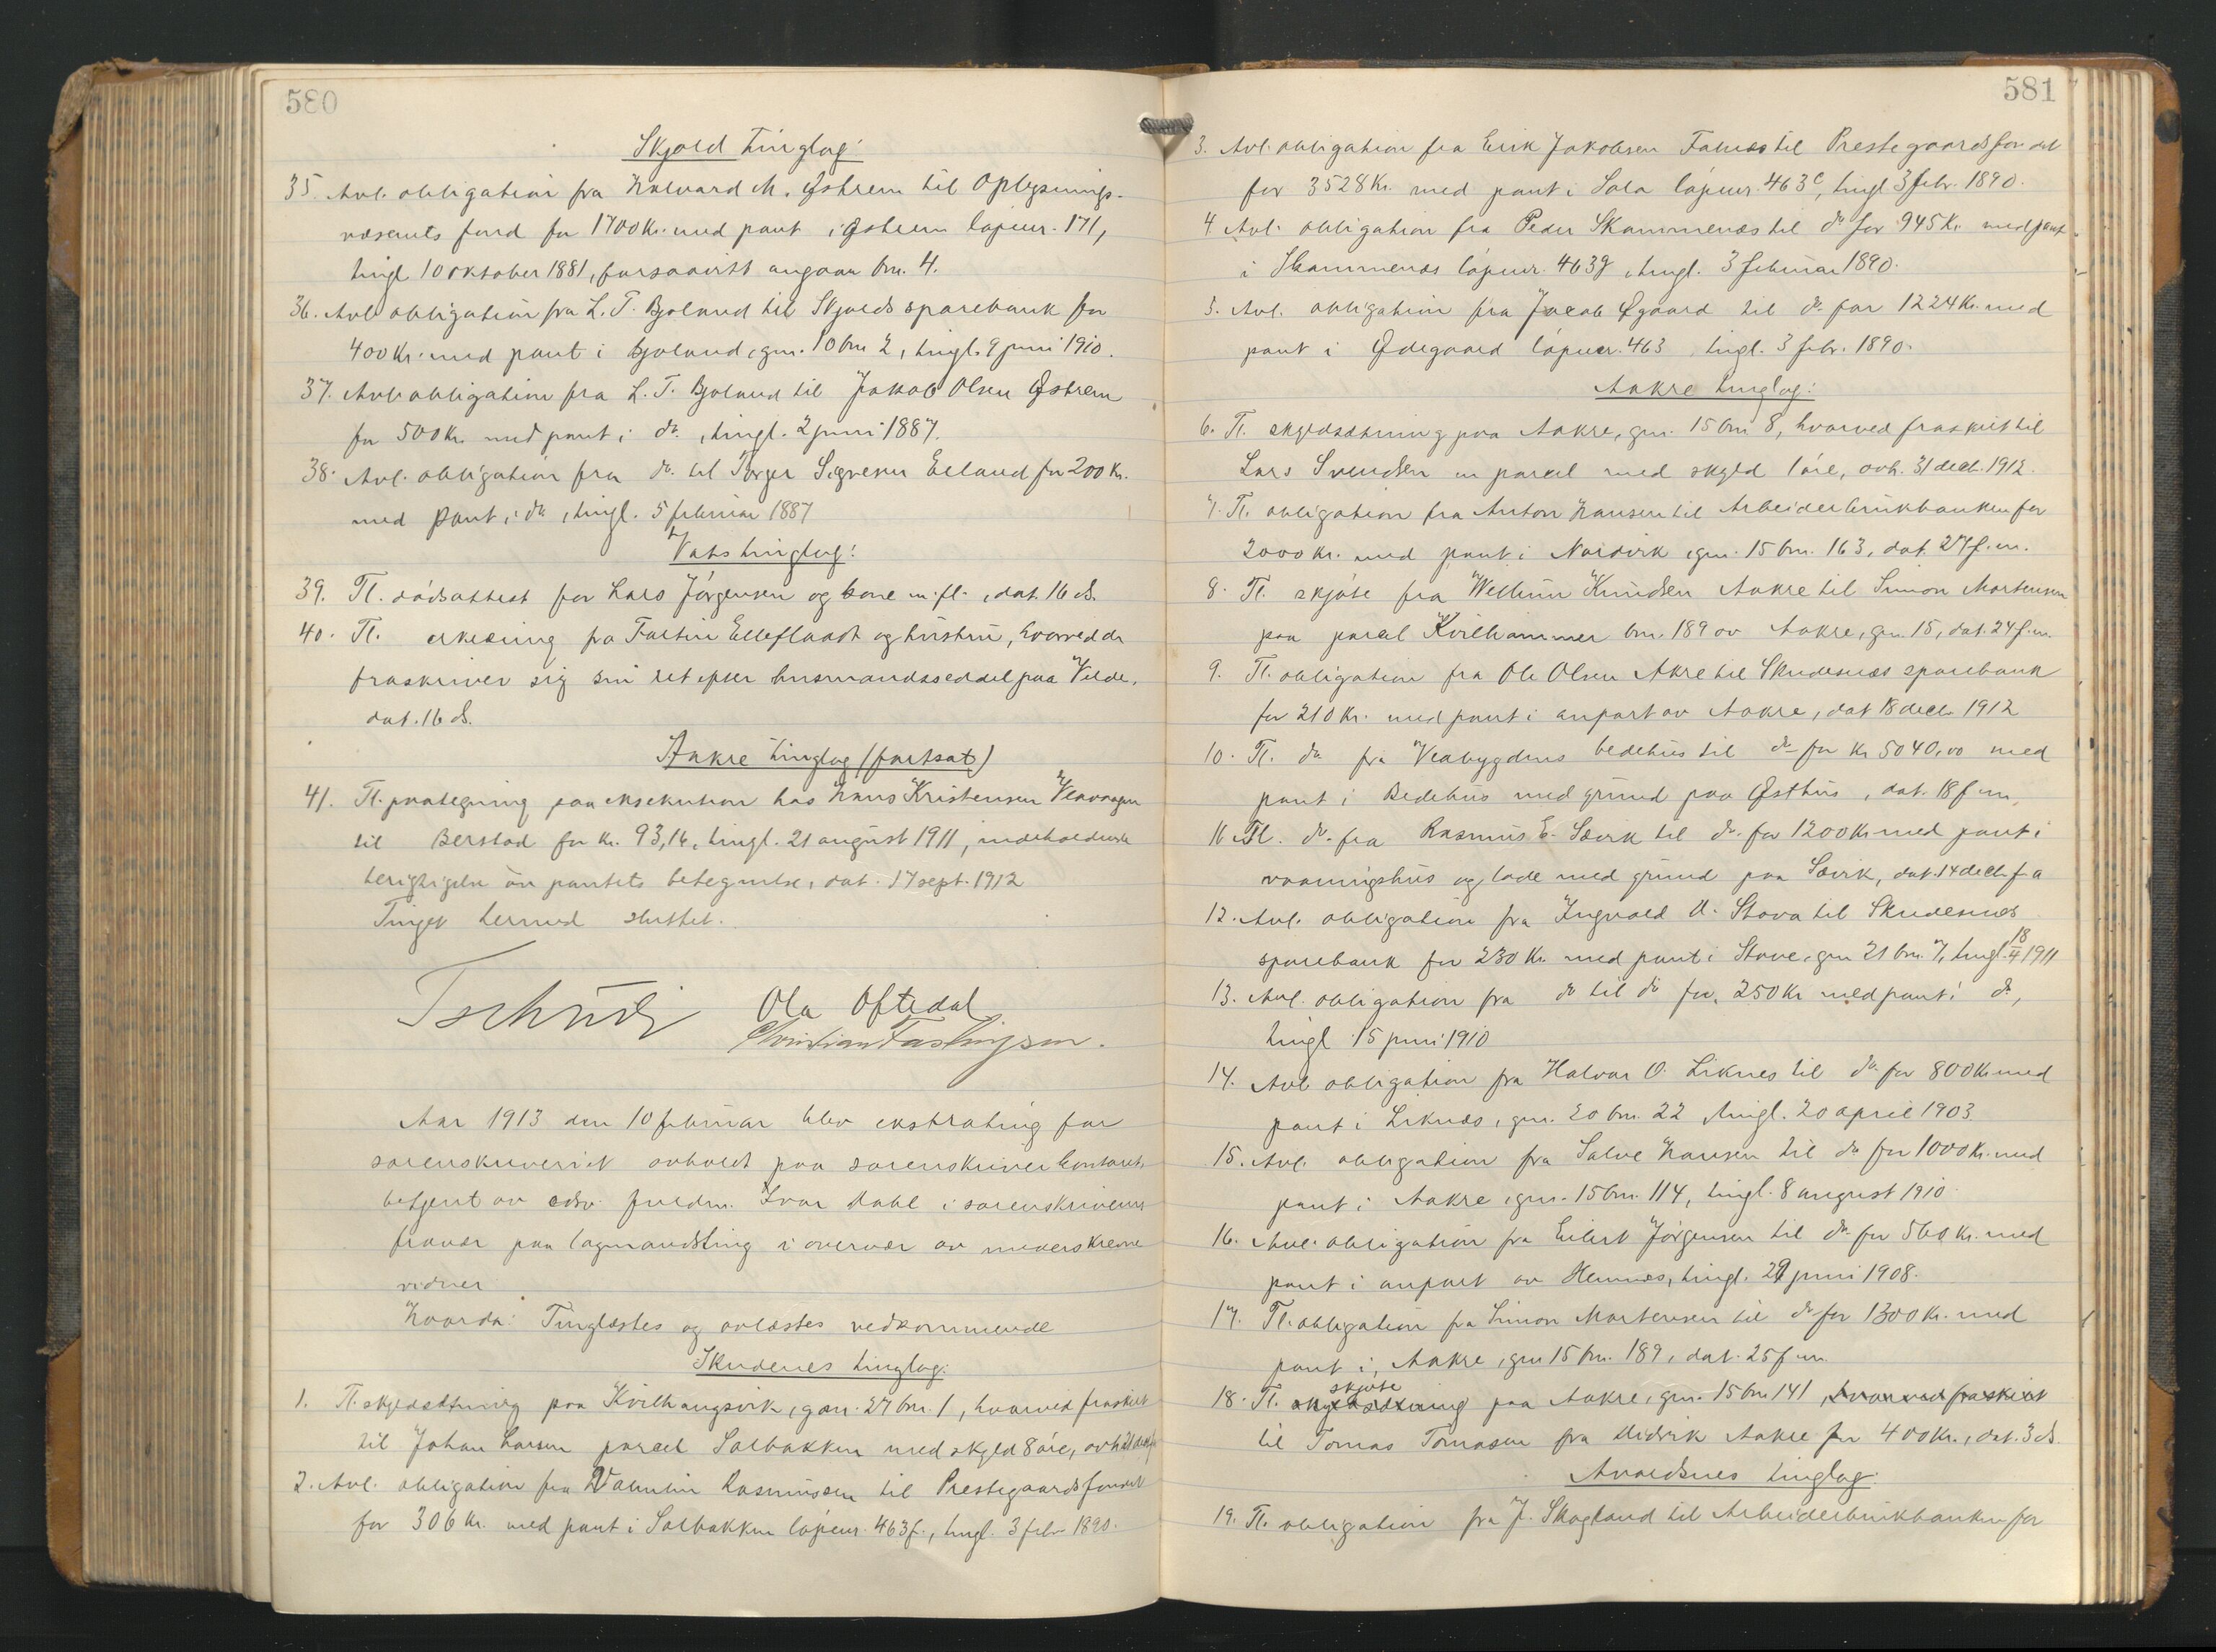 580
Skjold tinglag:
35. Avl. obligation fra Halvard M. Østrem til Oplysnings-
væsenets fond for 1700 Kr. med pant i Østrem løpenr. 171,
tingl 10 oktober 1881, forsaavitt angaar bnr. 4.
36. Avl obligation fra L. T. Bjoland til Skjolds sparebank for
400 Kr. med pant i Bjoland, gnr. 10 bnr 2, tingl. 9 juni 1910.
37. Avl obligation fra L. T. Bjoland til Jakob Olsen Østrem
for 500 Kr. med pant i do., tingl. 2 juni 1887.
38. Avl. obligation fra do. til Torger Sigvesen Eeland for 200 Kr.
med pant i do, tingl. 5 februar 1887
Vats tinglag:
39. Tl. dødsattest for Lars Jørgensen og kone m. fl., dat. 16 ds.
40. Tl. erkæring fra Fartin Elleflaadt og hustru, hvorved de
fraskriver sig sin ret efter husmandsseddel paa Velde,
dat. 16 ds.
Aakre tinglag (fortsat)
41. Tl. paategning paa eksekution hos Hans Kristensen Veavaagen
til Berstad for kr. 93,16, tingl. 21 august 1911, indeholdende
berigtigelse av pantets betegnelse, dat. 17 sept. 1912
Tinget hermed sluttet.
Tschudi Ola Oftedal
Christian Fastingsen.
Aar 1913 den 10 februar blev ekstrating for
sorenskriveriet avholdt paa sorenskriverkontoret,
betjent av edsv. fuldm. Ivar Dahl i sorenskriverens
fravær paa lagmandsting i overvær av underskrevne
vidner
Hvorda: Tinglæstes og avlæstes vedkommende
Skudenes tinglag:
1. Tl. skyldsætning paa Kvilhaugsvik, gnr. 27 bnr. 1, hvorved fraskilt
til Johan Larsen parcel Solbakken med skyld 8 øre, avh.
2. Avl. obligation fra Valentin Rasmussen til Prestegaardsfondet
for 306 Kr. med pant i Solbakken løpenr. 463f., tingl. 3 febr 1890.
581
3. Avl. obligation fra Erik Jakobsen Falnes til Prestegaardsfondet
for 3528 Kr. med pant i Sola løpenr. 463c, tingl 3 febr. 1890.
4 Avl. obligation fra Peder Skammenæs til do for 945 Kr. med pant
i Skammenæs løpenr. 463g, tingl. 3 februar 1890.
5. Avl. obligation fra Jacob Øgaard til do. for 1224 Kr. med
pant i Ødegaard løpenr. 463 tingl. 3 febr. 1890.
Aakre tinglag:
6. Tl. skyldsætning paa Aakre, gnr. 15 bnr 8, hvorved fraskilt til
Lars Svendsen en parcel med skyld 1 øre, avh. 31 decb. 1912.
7. Tl. obligation fra Anton Hansen til Arbeiderbrukbanken for
2000 kr. med pant i Nordvik, gnr. 15 bnr. 163, dat. 27 f. m.
8. Tl. skjøte fra Wellum Knudsen Aakre til Simon Mortensen
paa parcel Kvilhammer bnr. 189 av Aakre, gnr. 15, dat. 24 f. m.
9. Tl. obligation fra Ole Olsen Akre til Skudesnæs sparebank
for 210 Kr. med pant i anpart av Aakre, dat 18 decb 1912
10. Tl. do fra Veabygdens bedehus til do for kr 5040,00 med
pant i Bedehus med grund paa Østhus, dat. 18 f. m.
11. Tl. do. fra Rasmus E. Sævik til do. for 1200 Kr med pant i
vaaningshus og lade med grund paa Sævik, dat. 14 decb. f. a
12. Avl. obligation fra Ingvald O. Stova til Skudesnes
sparebank for 230 Kr. med pant i Stove, gnr 21 bnr. 7, tingl. 18/4 1911
13. Avl. obligation fra do til do for 250 Kr med pant i do,
tingl 15 juni 1910
14. Avl obligation fra Halvar O. Liknes til do for 800 Kr med
pant i Liknæs, gnr. 20 bnr. 22 tingl. 20 april 1903
15. Avl. obligation fra Salve Hansen til do for 1000 Kr. med
pant i Aakre, gnr. 15 bnr. 114, tingl. 8 august 1910
16. Avl. obligation fra Eilert Jørgensen til do for 560 Kr. med
pant i anpart av Hemnes, tingl. 29 juni 1908.
17. Tl. obligation fra Simon Mortensen til do for 1300 Kr. med
pant i Aakre, gnr 15 bnr. 189, dat. 25 f. m.
18. Tl. skyldsætning skjøte paa Aakre, gnr. 15 bnr 141, hvorved fraskilt
til Tomas Tomasen fra Didrik Aakre for 400 Kr., dat. 3 ds.
Avaldsnes tinglag:
19. Tl. obligation fra J. Skogland til Arbeiderbrukbanken for